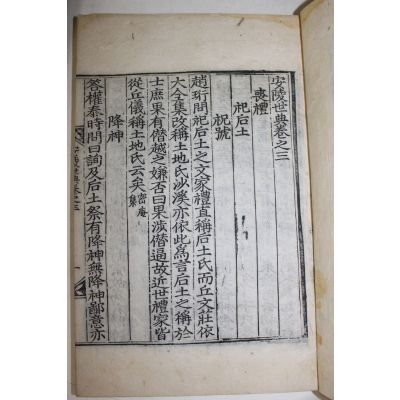 安陵世典卷之三
喪禮
祀后土
祝號
趙珩問祀后土之文家禮直稱后土氏而丘文莊依
大全集改稱土地氏沙溪亦依此為言后土之稱於
士庶果有僭越之嫌否曰果涉僭逼故近世禮家皆
從丘儀稱土地氏云矣密庵集
降神
答權泰時問曰詢及后土祭有降神無降神鄙意亦